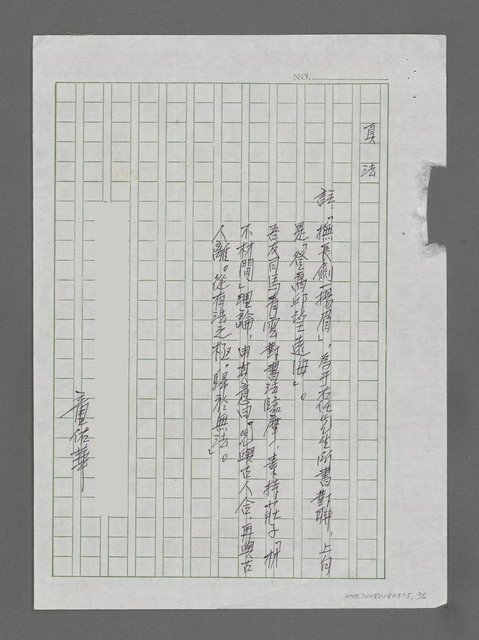 NO.
真法
註：「撫長劍一揚眉」，為于右任先生所書對聯，上句
是「登高邱望遠海」。
吾友司馬青雲對書法臨摩，秉持莊子「材
不材間」理論，申其意曰「先與古人合，再與古
人離。從有法之極，歸於無法」。
童佑華